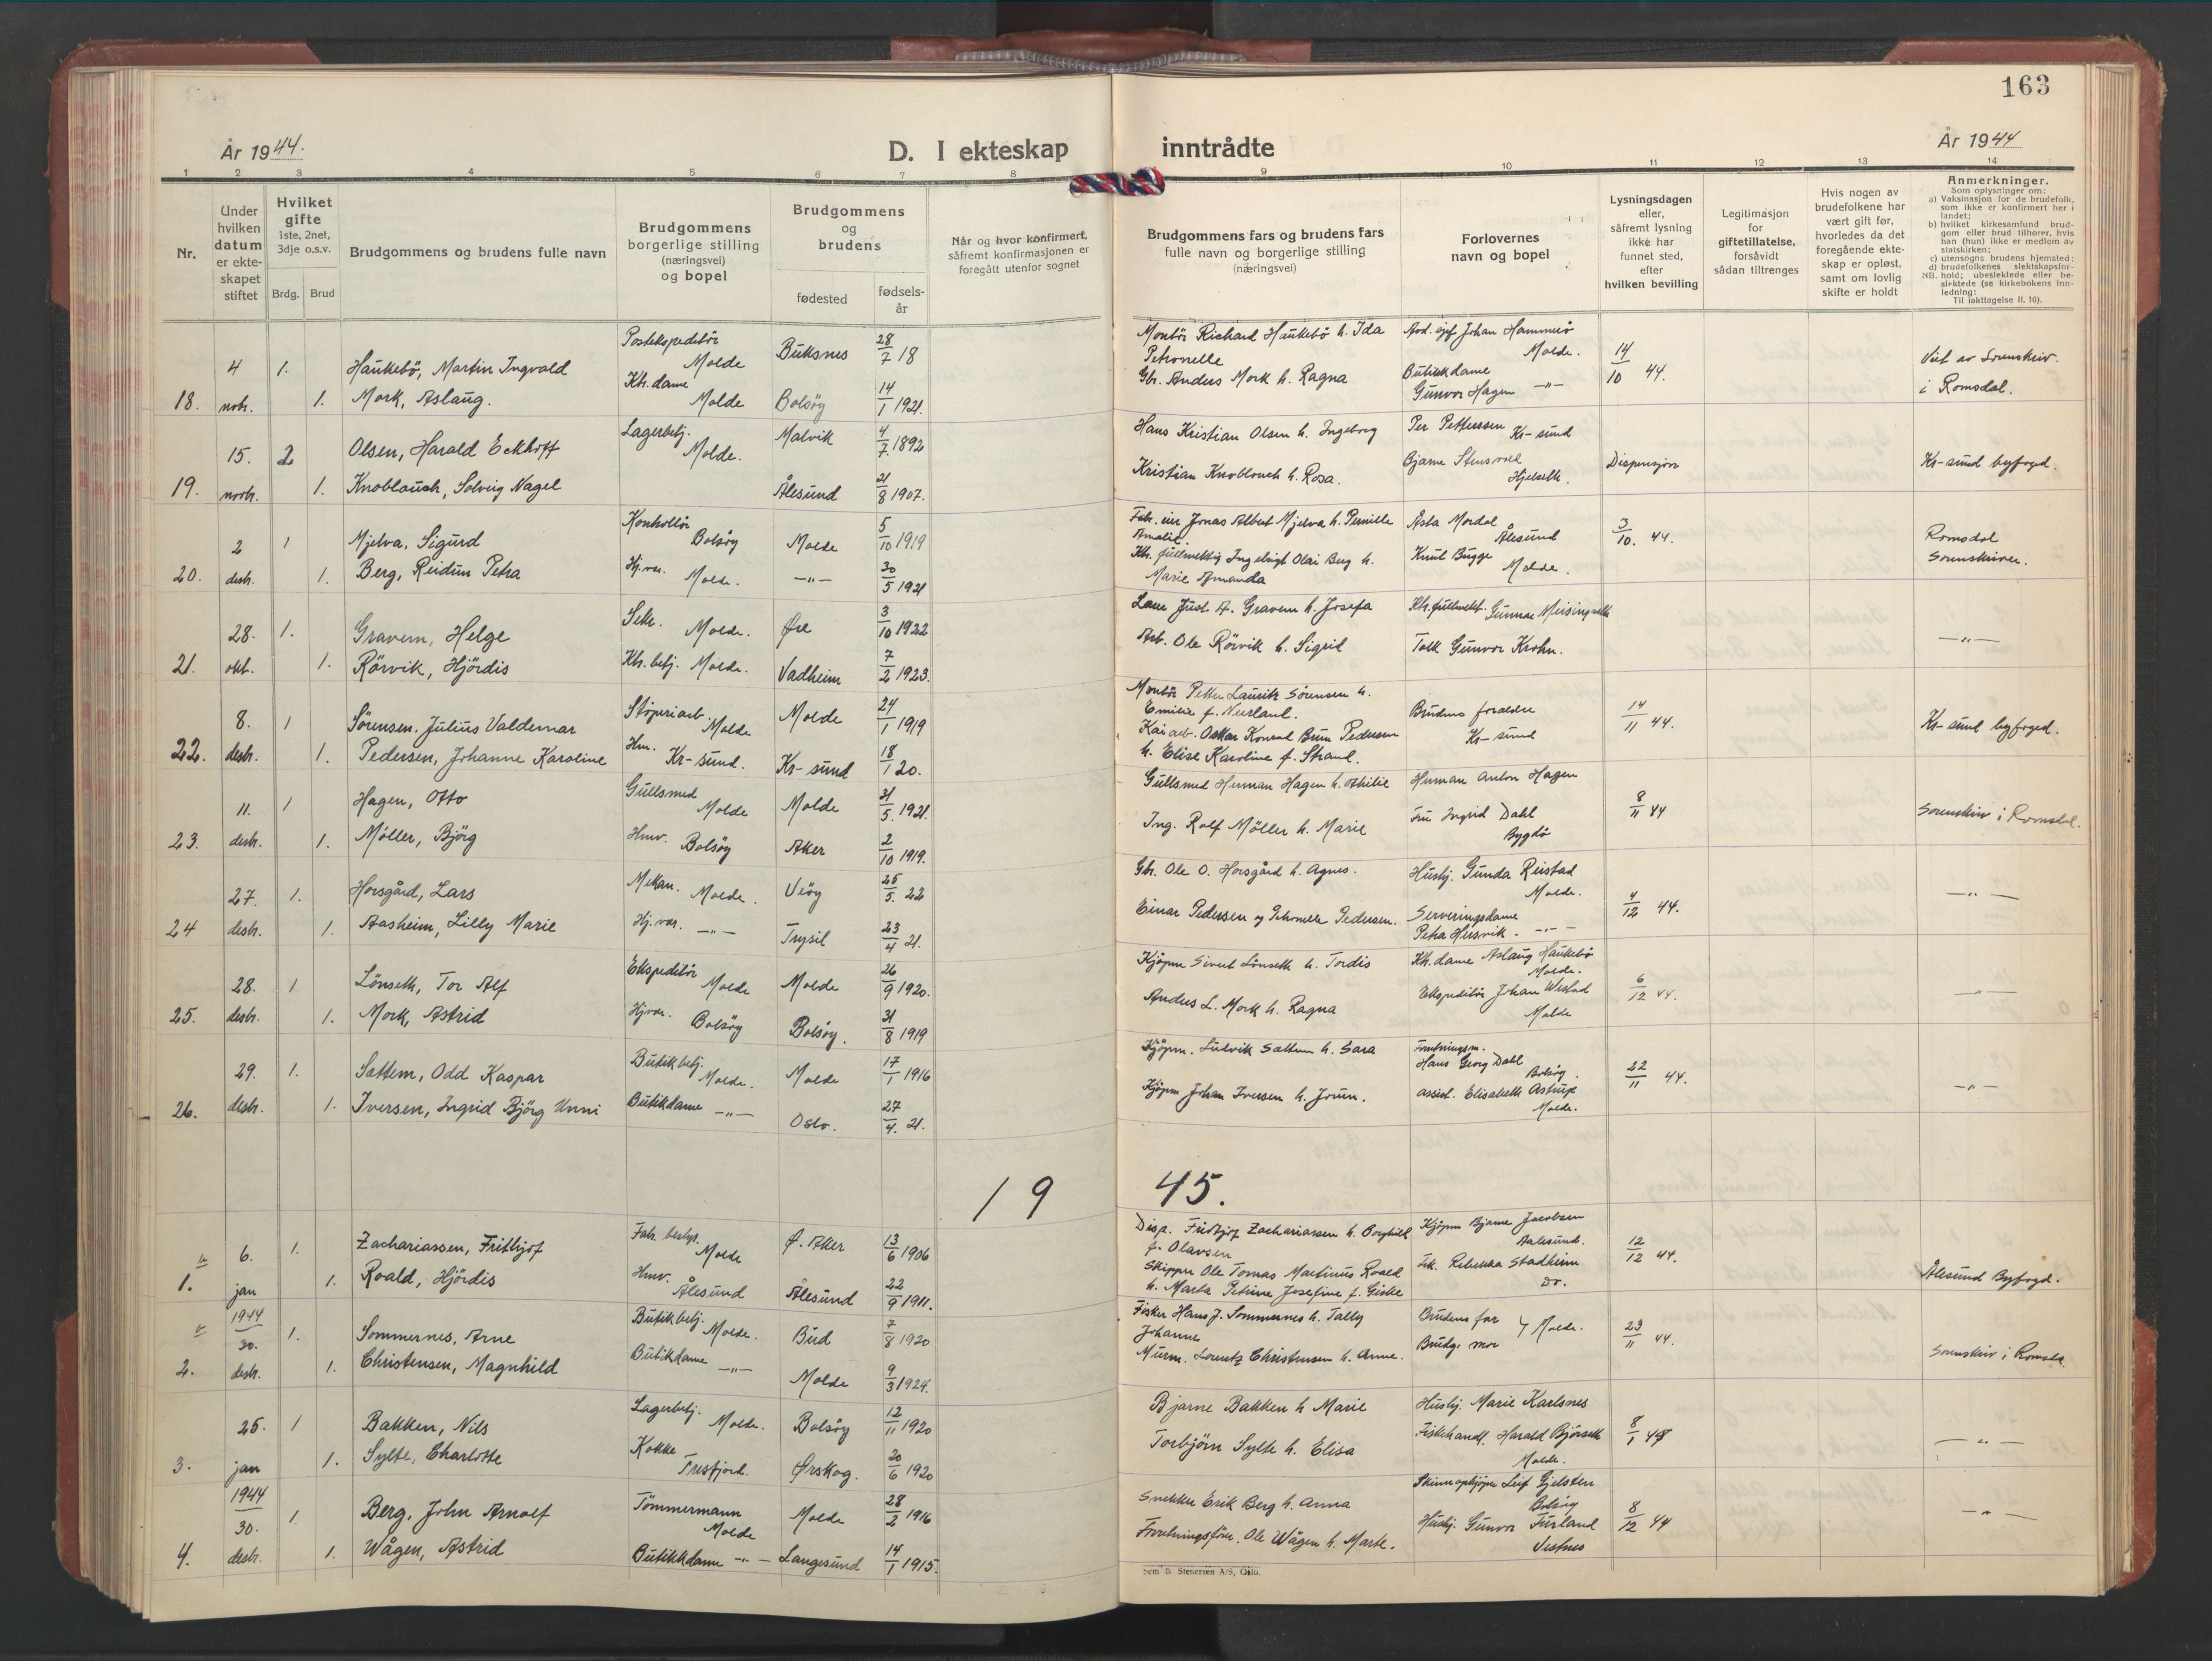 163
År 1944.
D. I ekteskap inntrådte
År 1944
1 2 3 4 5 6 7 8 9 10 11 12 13 14
Nr.
Under hvilken datum er ekteskapet stiftet
Hvilket gifte 1ste, 2net, 3dje o.s.v.
Brdg. Brud
Brudgommens og brudens fulle navn
Brudgommens borgerlige stilling (næringsvei) og bopel
Brudgommens og brudens
fødested
fødselsår
Når og hvor konfirmert, såfremt konfirmasjonen er foregått utenfor sognet
Brudgommens fars og brudens fars fulle navn og borgerlige stilling (næringsvei)
Forlovernes navn og bopel
Lysningsdagen eller, såfremt lysning ikke har funnet sted, efter hvilken bevilling
Legitimasjon for giftetillatelse, forsåvidt sådan tiltrenges
Hvis nogen av brudefolkene har vært gift før, hvorledes da det foregående ekteskap er opløst, samt om lovlig skifte er holdt
Anmerkninger.
Som oplysninger om:
a) Vaksinasjon for de brudefolk, som ikke er konfirmert her i landet;
b) hvilket kirkesamfund brudgom eller brud tilhører, hvis han (hun) ikke er medlem av statskirken;
c) utensogns brudens hjemsted;
d) brudefolkenes slektskapsforhold; ubeslektede eller beslektede (se kirkebokens innledning:
NB. Til iakttagelse II. 10).
4 1. Haukebö, Martin Ingvald Postekspeditör Molde Buksnes 28/7 18 Montör Richard Haukebö h. Ida Petronelle Johan Hammerö Molde. 14/10 44. Viet av Sorenskriv. i Romsdal.
18. novb. 1. Mork, Aslaug. Kt. dame Molde Bolsöy 14/1 1921. Gbr. Anders Mork h. Ragna Butikkdame Gunvor Hagen —"—
15. 2 Olsen, Harald Eckhoff Lagerbetj. Molde. Malvik 4/7 1892 Hans Kristian Olsen h. Ingeborg Per Petterssen Kr-sund Dispensjon Kr-sund byfogd.
19. novb. 1. Knoblauch, Solveig Nagel Ålesund 21/8 1907. Kristian Knoblauch h. Rosa. Bjarne Stensvoll Hjelseth.
2 1 Mjelva, Sigurd Kontrollör Bolsöy Molde 5/10 1919 Fab. eier Jonas Albert Mjelva h. Pernille Amalie Åsta Mordal Ålesund 3/10. 44. Romsdal Sorenskriver.
20. desb. 1. Berg, Reidun Petra Hj.vær. Molde. —"— 30/5 1921 Kt. fullmektig Ingebrigt Olai Berg h. Marie Amanda Knut Bugge Molde.
28. 1. Gravem, Helge Sekr. Molde. Øre 3/10 1922 Just. A. Gravem h. Josefa Kt. fullmekt. Gunnar Meisingseth —"—
21. okt. 1. Rörvik, Hjördis Kt. betj. Molde. Vadheim 7/2 1923. Arb. Ole Rörvik h. Sigrid Tolk Gunvor Krohn.
8. 1 Sörensen, Julius Valdemar Stöperiarb. Molde Molde 24/1 1919 Montör Petter Lauritz Sörensen h. Emilie f. Neerland. Brudens foreldre Kr-sund 14/11 44. Kr-sund byfogd.
22. desb. 1. Pedersen, Johanne Karoline Hm. Kr-sund. Kr-sund 18/1 20. Kaiarb. Oskar Konrad Brun Pedersen h. Elise Karoline f. Strand.
11. 1 Hagen, Otto Gullsmed Molde Molde 31/5 1921. Gullsmed Herman Hagen h. Othilie Herman Anton Hagen 8/11 44 Sorenskriv i Romsdal.
23. desb. 1. Möller, Björg Hmv. Bolsöy Aker 2/10 1919. Ing. Rolf Möller h. Marie Fru Ingrid Dahl Bygdö
27. 1. Horsgård, Lars Mekan. Molde. Veöy 25/5. 22 Gbr. Ole O. Horsgård h. Agnes. Hushj. Gunda Reistad Molde. 4/12 44. —"—
24 desb. 1. Aasheim, Lilly Marie Hj.vær. —"— Trysil 23/4 21. Einar Pedersen og Petronelle Pedersen. Serveringsdame Petra Hersvik. —"—
28. 1 Lönseth, Tor Alf Ekspeditör Molde Molde 26/9 1920. Kjöpm Sivert Lönseth h. Tordis Kt. dame Aslaug Haukebö Molde. 6/12 44. —"—
25. desb. 1. Mork, Astrid Hjvær. Bolsöy Bolsöy. 31/8 1919 Anders L. Mork h. Ragna Ekspeditör Johan Westad Molde
29. 1. Sættem, Odd Kaspar Butikbetj. Molde. Molde 17/1 1916 Kjöpm. Ludvik Sættem h. Sara Forretningsm. Hans Georg Dahl Bolsöy. 22/11 44. —"—
26. desb. 1. Iversen, Ingrid Björg Unni Butikdame —"— Oslo. 27/4. 21. Kjöpm Johan Iversen h. Jorun. assist. Elisabeth Astrup Molde.
1945.
6. 1. Zachariassen, Frithjof Fab. bestyr. Molde Ø. Aker 13/6 1906 Disp. Fridtjof Zachariassen h. Borghild f. Olavsen Kjöpm Bjarne Jacobsen Aalesund. 12/12 44. Ålesund Byfogd.
1. jan 1. Roald, Hjördis Hmv. Ålesund Ålesund 22/9 1911. Skipper Ole Tomas Martinus Roald h. Marta Petrine Josefine f. Giske Frk. Rebekka Stadheim Do.
1944 30. 1. Sommernes, Arne Butikbetj. Molde. Bud 7/8 1920 Fisker Hans J. Sommernes h. Tally Johanne Brudens far Brudg. mor } Molde. 23/11 44. Sorenskriv i Romsda
2. desb. 1. Christensen, Magnhild Butikdame —"— Molde 9/3 1924. Murm. Lorentz Christensen h. Anne.
25. 1 Bakken, Nils Lagerbetj. Molde. Bolsöy 12/11 1920 Bjarne Bakken h Marie Hushj. Marie Karlsnes 8/1 45 —"—
3. jan 1. Sylte, Charlotte Kokke Tresfjord. Ørskog. 20/6 1920 Torbjörn Sylte h. Elisa Fiskehandl. Harald Björseth Molde.
1944 30. 1. Berg, John Arnolf Tömmermann Molde Molde 28/2 1916 Snekker Erik Berg h. Anna Skinnopkjöper Leif Gjelsten Bolsöy 8/12 44 —"—
4. desb. 1. Wågen, Astrid Butikkdame —"— Langesund 14/1 1915. Forretningsförer. Ole Wågen h. Marte. Hushj. Gunvor Furland Vestnes
Sem & Stenersen A/S, Oslo.